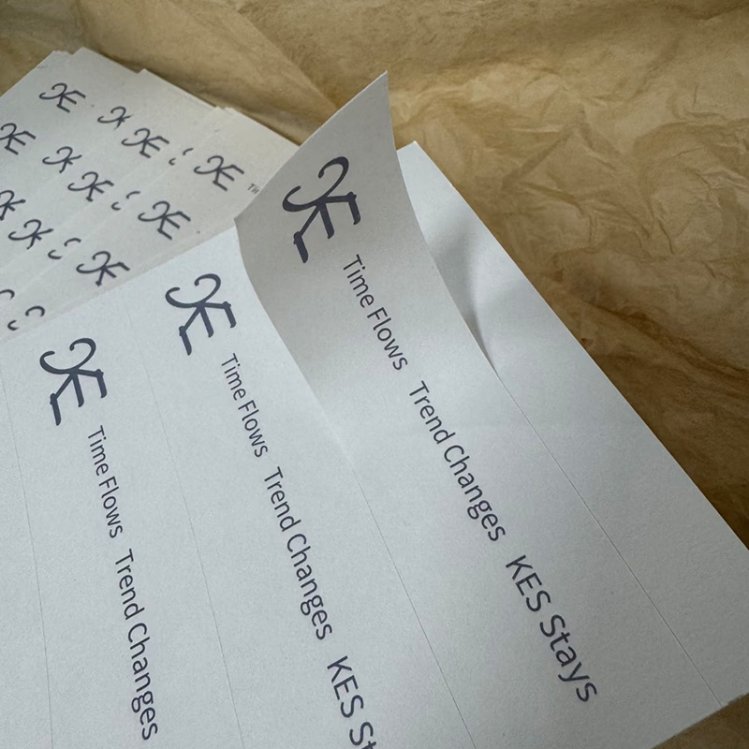 Time Flows Trend Changes KES Stays
Time Flows Trend Changes KES St
Time Flows Trend Changes
TM